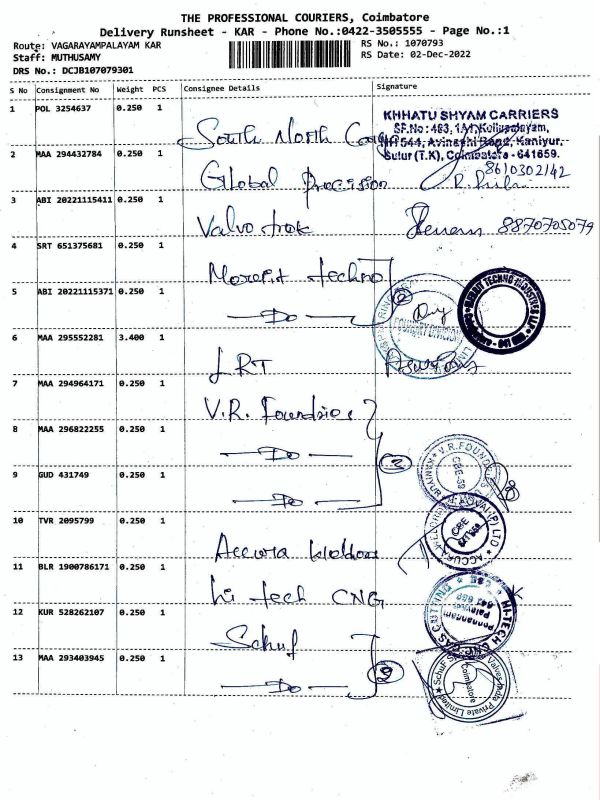 THE PROFESSIONAL COURIERS, Coimbatore
Delivery Runsheet - KAR - Phone No.:0422-3505555 - Page No.:1
Route: VAGARAYAMPALAYAM KAR
RS No.: 1070793
Staff: MUTHUSAMY
RS Date: 02-Dec-2022
DRS No.: DCJB107079301
S No Consignment No Weight PCS Consignee Details Signature
1 POL 3254637 0.250 1
South North
KHHATU SHYAM CARRIERS
SF.No : 483, 1A1, Koliupalayam,
NH 544, Avinashi Road, Kaniyur,
Sulur (T.K), Coimbatore - 641659.
2 MAA 294432784 0.250 1
Global Precision
8610302142
3 ABI 20221115411 0.250 1
Valvo trok
8870705079
4 SRT 651375681 0.250 1
techno
5 ABI 20221115371 0.250 1
Do
2
FOUNDRY DIVISION
6 MAA 295552281 3.400 1
LRT
7 MAA 294964171 0.250 1
V.R. Foundries
8 MAA 296822255 0.250 1
Do
3
V.R.FOUND
CBE-59
9 GUD 431749 0.250 1
Do
10 TVR 2095799 0.250 1
Accura
ACCURA (P) LTD
CBE
11 BLR 1900786171 0.250 1
hi tech CNG
HI-TECH GAS CUTTING
12 KUR 528262107 0.250 1
Schuf
13 MAA 293403945 0.250 1
Do
2
SchuF Valves India Private Limited
Coimbatore